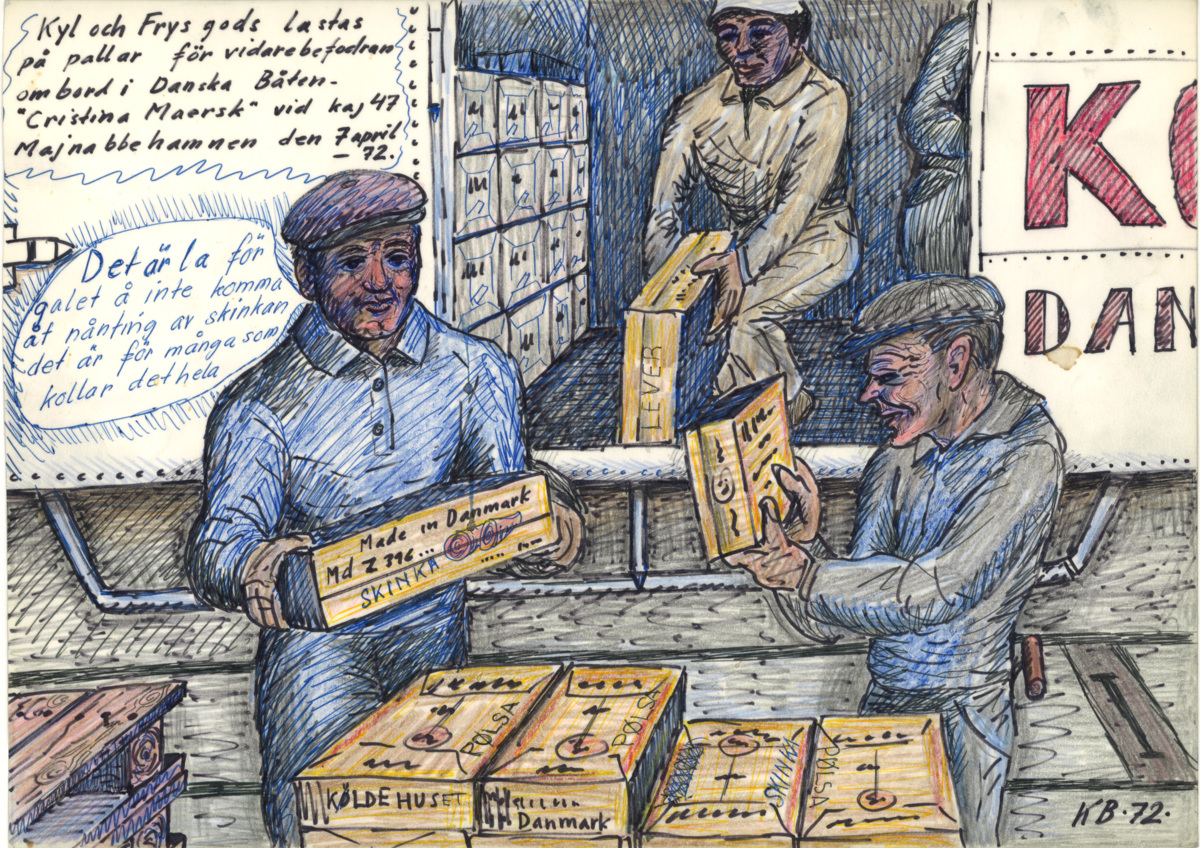 Kyl och Frys gods lastas
på pallar för vidarebefodran
ombord i Danska Båten-
"Cristina Maersk" vid kaj 47
Majnabbehamnen den 7 april
- 72.
Det är la för
galet å inte komma
åt nånting av skinkan
det är för många som
kollar det hela
K
DAN
LEVER
Made in Danmark
Md Z 396...
SKINKA
PØLSA
PØLSA
SKINKA
PØLSA
KØLDEHUSET
Danmark
KB·72·